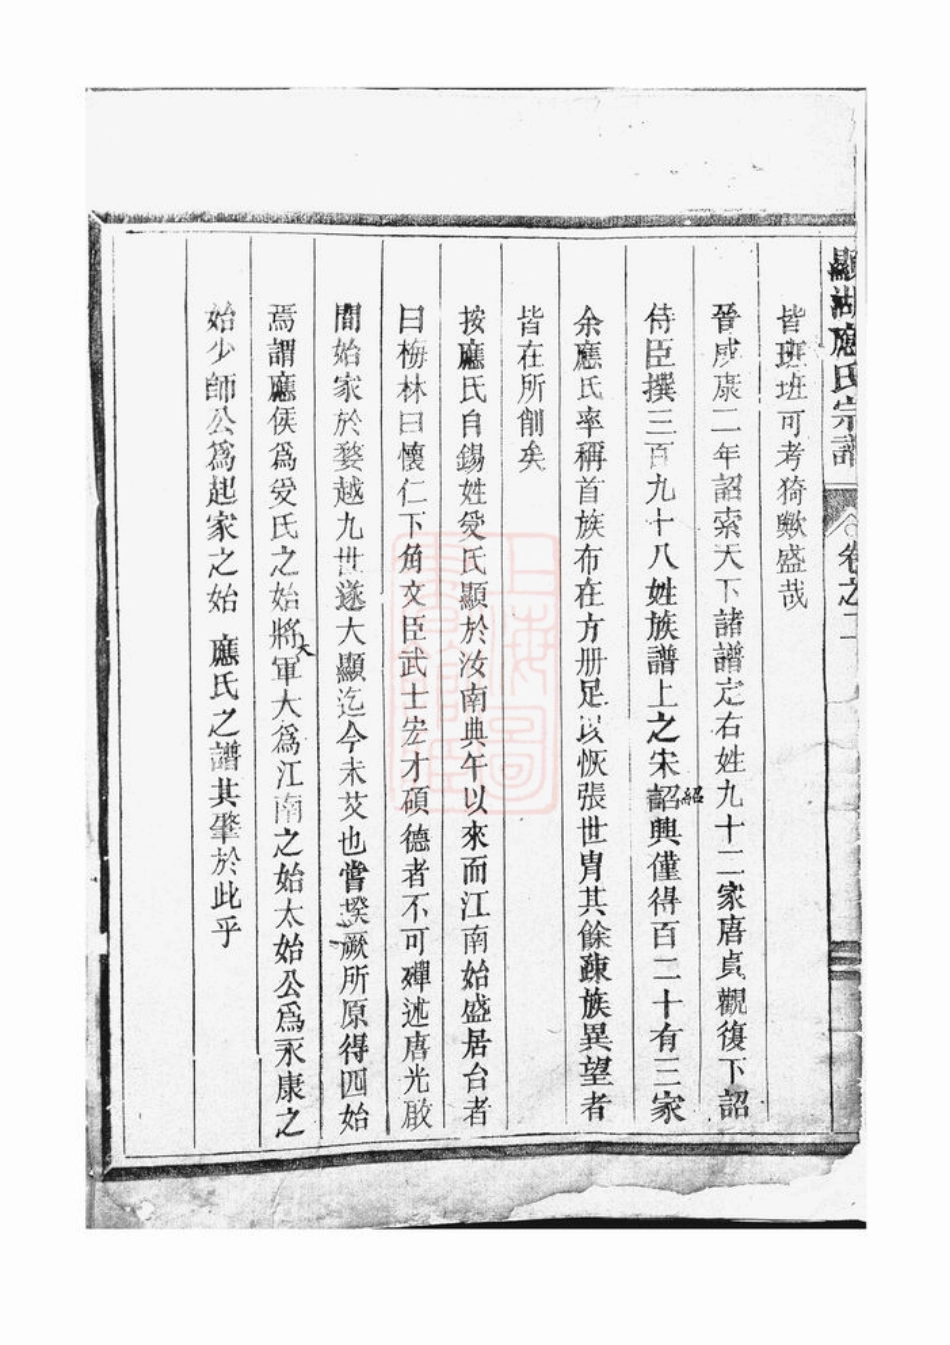 顯湖應氏宗譜 卷之二
皆班班可考猗歟盛哉
晉咸康二年詔索天下諸譜定右姓九十二家唐貞觀復下詔
侍臣撰三百九十八姓族譜上之宋詔興僅得百二十有三家
紹
余應氏率稱首族布在方册足以恢張世冑其餘踈族異望者
皆在所削矣
按應氏自錫姓受氏顯於汝南典午以來而江南始盛居台者
曰梅林曰懷仁下角文臣武士宏才碩德者不可殫述唐光啟
間始家於婺越九世遂大顯迄今未艾也嘗揆厥所原得四始
焉謂應侯爲受氏之始將軍大爲江南之始太始公爲永康之
大
始少師公爲起家之始 應氏之譜其肇於此乎
上海圖